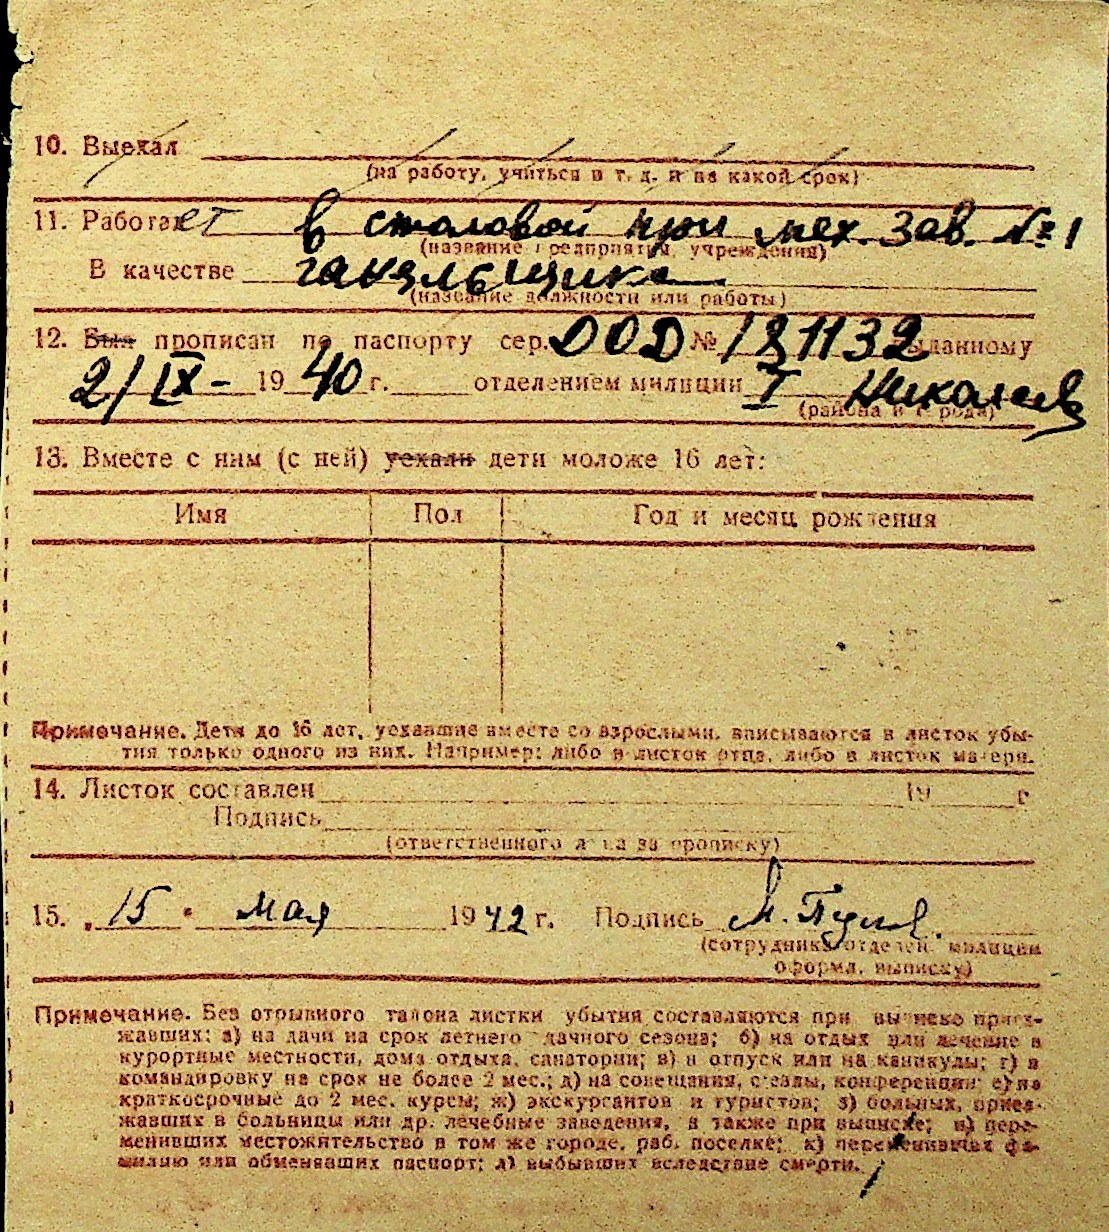 10. Выехал
(на работу, учиться и т. д. и на какой срок)
11. Работает в столовой при мех. зав. № 1
(название предприятия, учреждения)
В качестве
(название должности или работы)
12. Был прописан по паспорту сер. ООД № 181132 выданному
2/IX- 1940 г. отделением милиции I Николаев
(района и города)
13. Вместе с ним (с ней) уехали дети моложе 16 лет:
Имя Пол Год и месяц рождения
Примечание. Дети до 16 лет, уехавшие вместе со взрослыми, вписываются в листок убы-
тия только одного из них. Например: либо в листок отца, либо в листок матери.
14. Листок составлен 19 г.
Подпись
(ответственного лица за прописку)
15. „15" мая 1942 г. Подпись
(сотрудника отделен. милиции
оформл. выписку)
Примечание. Без отрывного талона листки убытия составляются при выписке приез-
жавших: а) на дачи на срок летнего дачного сезона; б) на отдых или лечение в
курортные местности, дома отдыха, санатории; в) в отпуск или на каникулы; г) в
командировку на срок не более 2 мес.; д) на совещания, съезды, конференции; е) на
краткосрочные до 2 мес. курсы; ж) экскурсантов и туристов; з) больных, приез-
жавших в больницы или др. лечебные заведения, а также при выписке; и) пере-
менивших местожительство в том же городе, раб. поселке; к) переменивших фа-
милию или обменявших паспорт; л) выбывших вследствие смерти.